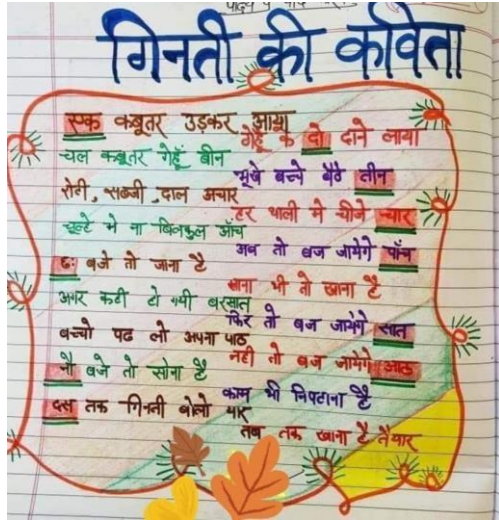 गिनती की कविता
एक कबूतर उड़कर आया
गेहूँ के दो दाने लाया
चल कबूतर गेहूँ बीन
भूखे बच्चे बैठे तीन
रोटी, सब्जी, दाल अचार
हर थाली मे चीजे चार
चूल्हे मे ना बिलकुल आँच
अब तो बज जायेगे पाँच
छः बजे तो जाना है
खाना भी तो खाना है
अगर कही हो गयी बरसात
फिर तो बज जायेगे सात
बच्चो पढ लो अपना पाठ
नही तो बज जायेगे आठ
नौ बजे तो सोना है
काम भी निपटाना है
दस तक गिनती बोलो यार
तब तक खाना है तैयार